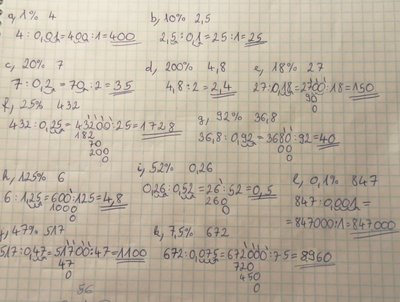 a, 1% 4
4 : 0,01 = 400 : 1 = 400
b, 10% 2,5
2,5 : 0,1 = 25 : 1 = 25
c, 20% 7
7 : 0,2 = 70 : 2 = 35
d, 200% 4,8
4,8 : 2 = 2,4
e, 18% 27
27 : 0,18 = 2700 : 18 = 150
90
0
f, 25% 432
432 : 0,25 = 43200 : 25 = 1728
182
70
200
0
g, 92% 36,8
36,8 : 0,92 = 3680 : 92 = 40
00
0
h, 125% 6
6 : 1,25 = 600 : 125 = 4,8
1000
0
i, 52% 0,26
0,26 : 0,52 = 26 : 52 = 0,5
260
0
l, 0,1% 847
847 : 0,001 =
= 847000 : 1 = 847000
j, 47% 517
517 : 0,47 = 51700 : 47 = 1100
47
0
k, 7,5% 672
672 : 0,075 = 672000 : 75 = 8960
720
450
0
56